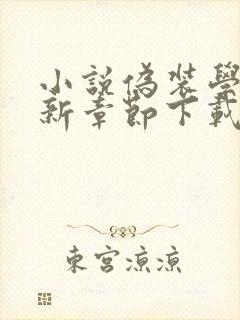 小說偽裝學
新章節下載
東宮涼涼